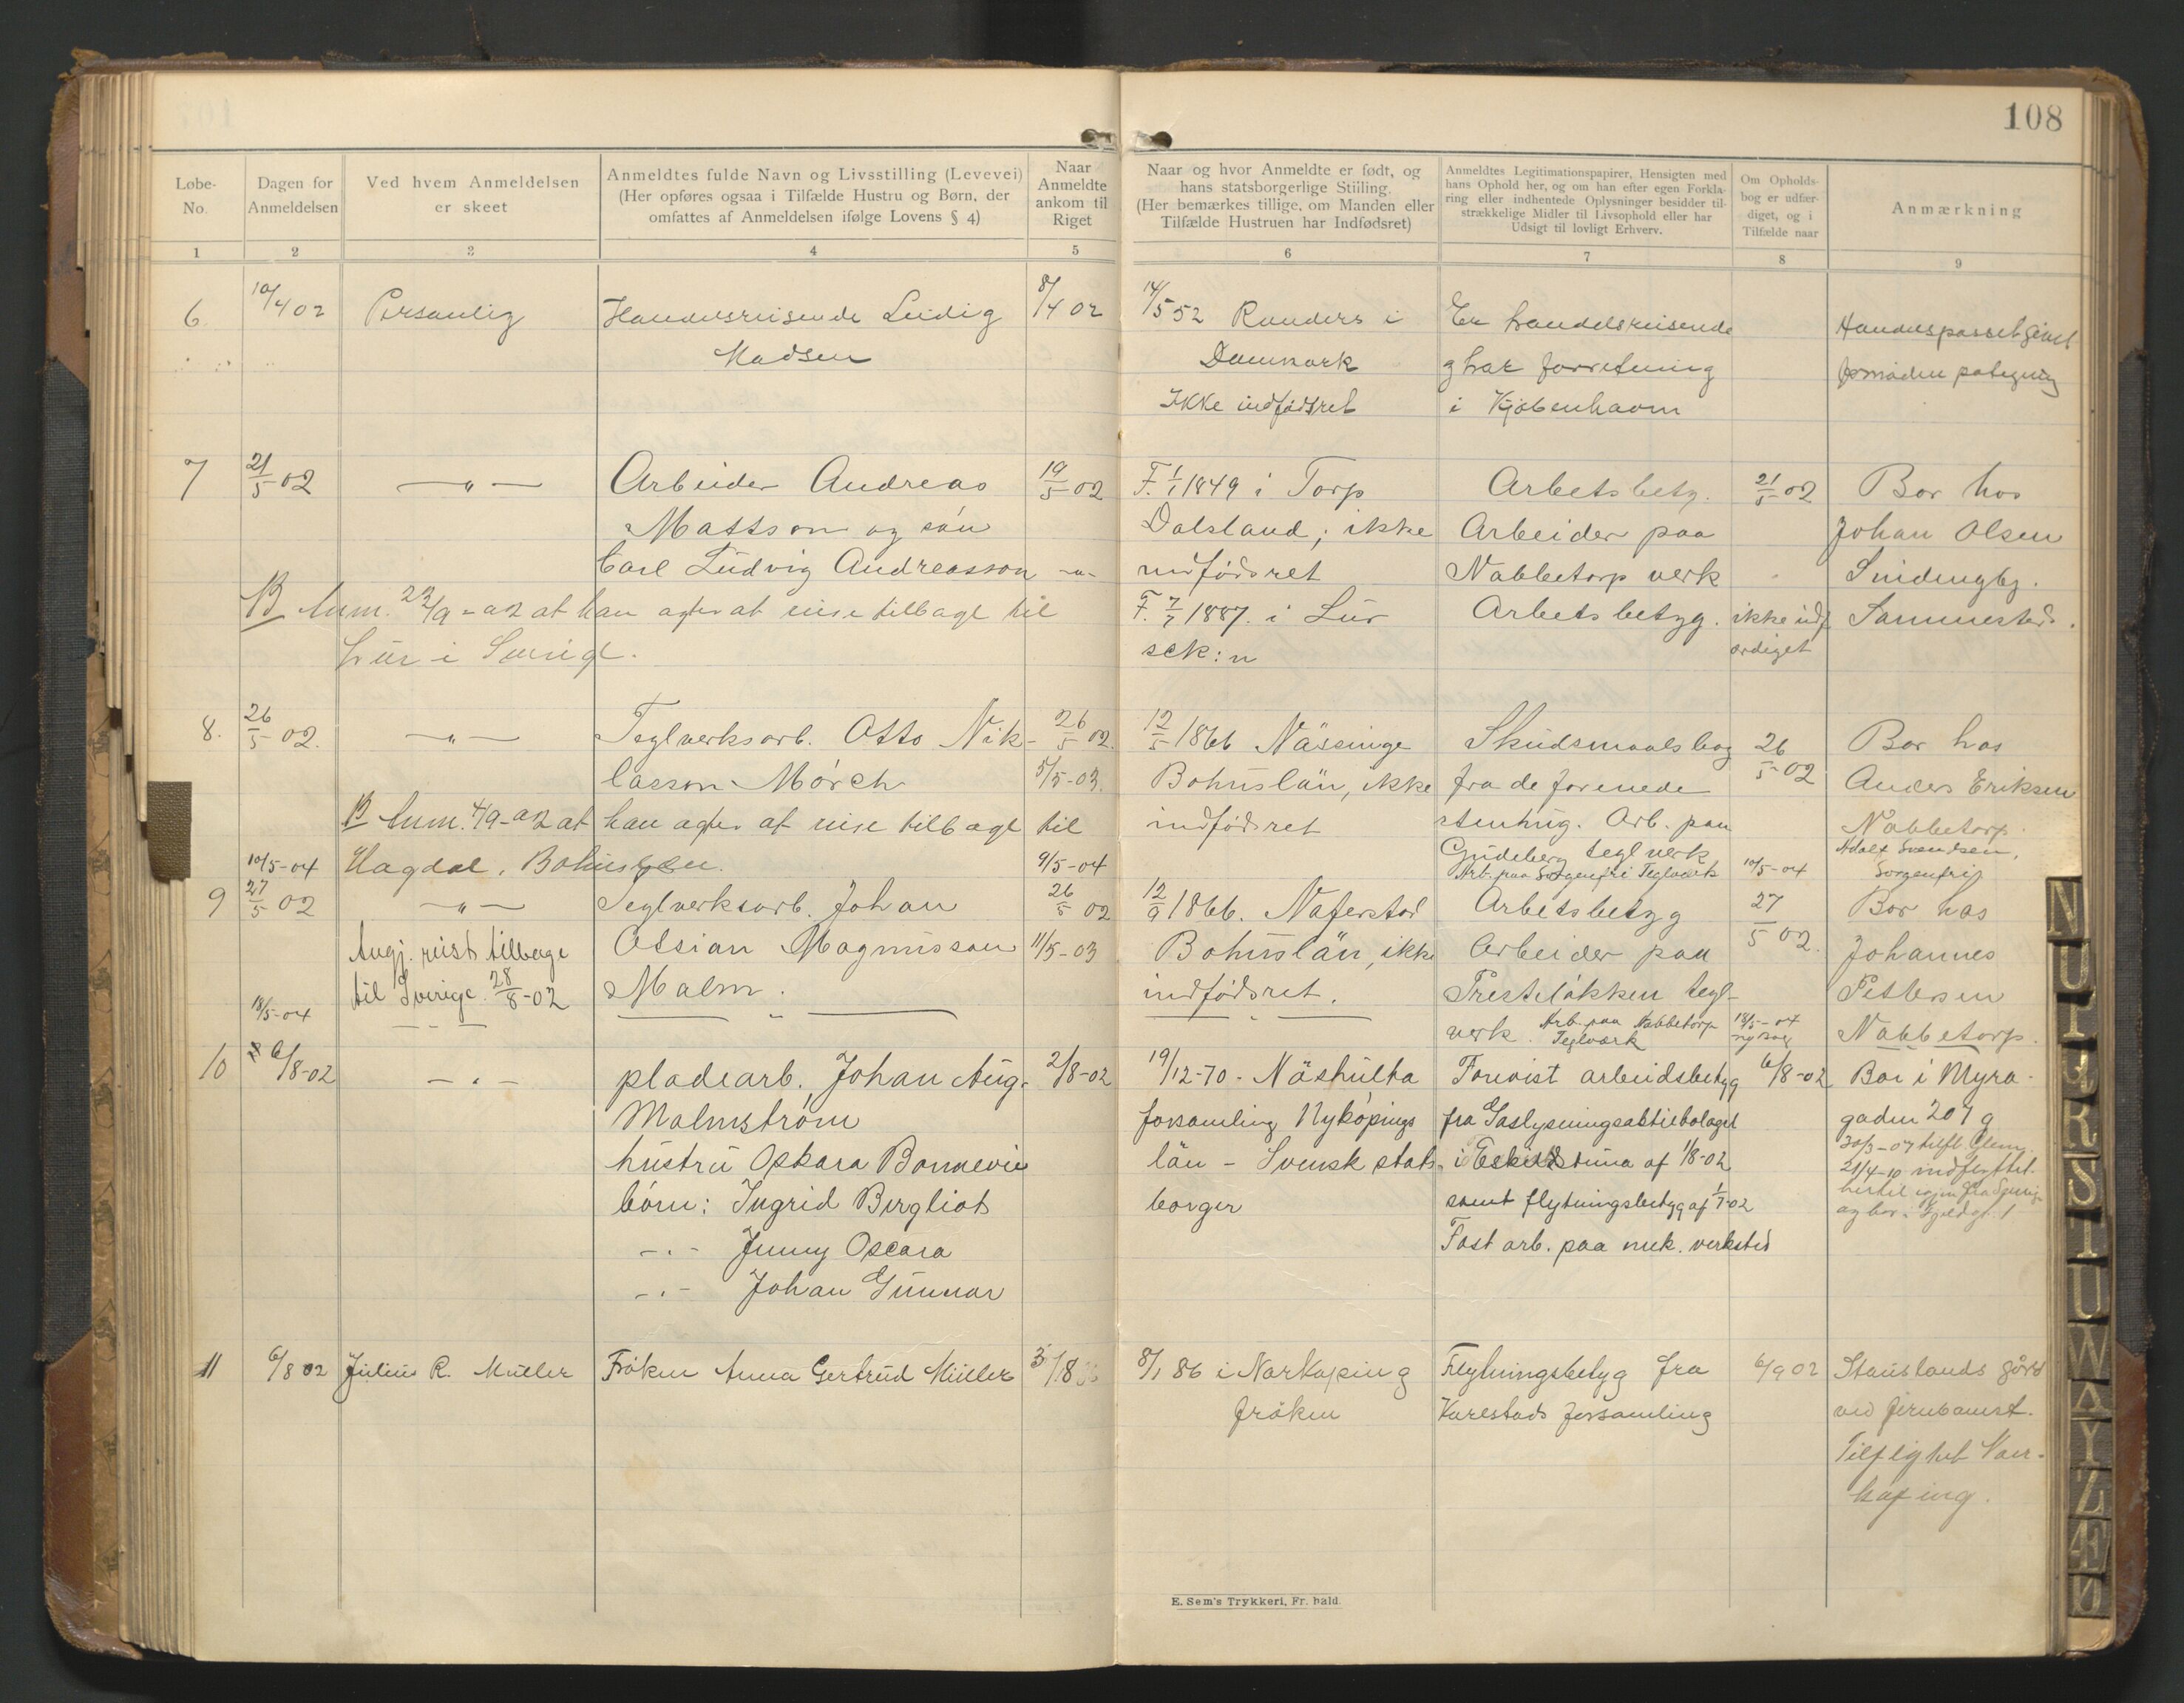 108
Løbe-No.
Dagen for Anmeldelsen
Ved hvem Anmeldelsen er skeet
Anmeldtes fulde Navn og Livsstilling (Levevei)
(Her opføres ogsaa i Tilfælde Hustru og Børn, der
omfattes af Anmeldelsen ifølge Lovens § 4)
Naar Anmeldte ankom til Riget
Naar og hvor Anmeldte er født, og
hans statsborgerlige Stilling.
(Her bemærkes tillige, om Manden eller
Tilfælde Hustruen har Indfødsret)
Anmeldtes Legitimationspapirer, Hensigten med
hans Ophold her, og om han efter egen Forkla-
ring eller indhentede Oplysninger besidder til-
strækkelige Midler til Livsophold eller har
Udsigt til lovligt Erhverv.
Om Opholds-
bog er udfær-
diget, og i
Tilfælde naar
Anmærkning
1 2 3 4 5 6 7 8 9
6 10/4 02 Personlig Handelsreisende Ludig 8/4 02 14/5 52 Randers i Er handelsreisende
Madsen Danmark og har forretning
Ikke indfødsret i Kjøbenhavn
7 21/5 02 —"— Arbeider Andreas 19/5 02 F. 1/1 1849 i Torp Arbetsbetg. 21/5 02 Bor hos
Mattson og søn Dalsland; ikke Arbeider paa Johan Olsen
Carl Ludvig Andreasson -"- indfødsret Nabbetorp verk
B Anm. 22/9-02 at han agter at reise tilbage til F. 7/7 1887. i Lur Arbetsbetyg. ikke udf Sammesteds.
Lur i Sverige. sck:n ærdiget
8. 26/5 02. —"— Teglverksarb. Otto Nik- 26/5 02. 12/5 1866 Nässinge Skudsmaalsbog 26/5 02 Bor hos
lasson Mörch 5/5-03. Bohuslän, ikke fra de forenede Anders Eriksen
B Anm. 4/9-02 at han agter at reise tilbage til indfødsret stenhug. Arb. paa Nabbetorp.
Gudeberg teglverk Adolf Svendsen,
10/5-04 Hagdal, Bohuslen. 9/5-04 Arb. paa Sorgenfri Teglværk 10/5-04 Sorgenfri
9 27/5 02 —"— Teglverksarb. Johan 26/5 02 12/9 1866. Naferstad Arbetsbetyg 27/5 02. Bor hos
Angj. reist tilbage Ossian Magnusson 11/5-03 Bohuslän, ikke Arbeider paa Johannes
til Sverige. 28/8-02 Malm. indfødsret. Presteløkken tegl- Pettersen
18/5-04 verk. Arb. paa Nabbetorp Teglværk 18/5-04 ny bog Nabbetorp.
10 6/8-02 -"- pladearb. Johan Aug. 2/8-02 19/12-70 - Näshulta Forevist arbeidsbetyg 6/8-02 Bor i Myra-
Malmström forsamling Nyköpings fra Gaslysningsaktiebolaget gaden 207 g
hustru Oskara Bonnevie län - Svensk stats- i Eskilstuna af 1/8-02
børn: Ingrid Bergliot borger samt flytningsbetyg af 1/7-02
-"- Jenny Oscara Fast arb. paa mek. verksted
-"- Johan Gunnar
11 6/8 02 Julius R. Müller Frøken Anna Gertrud Müller 8/1 86 i Norkøping Flytningsbetyg fra 6/9 02
frøken Karlstads forsamling ved Jernbanest.
Tilflyttet Nor-
køping.
E. Sem's Trykkeri, Fr. hald.
N U T E R S I U W A Y Z Æ Ø